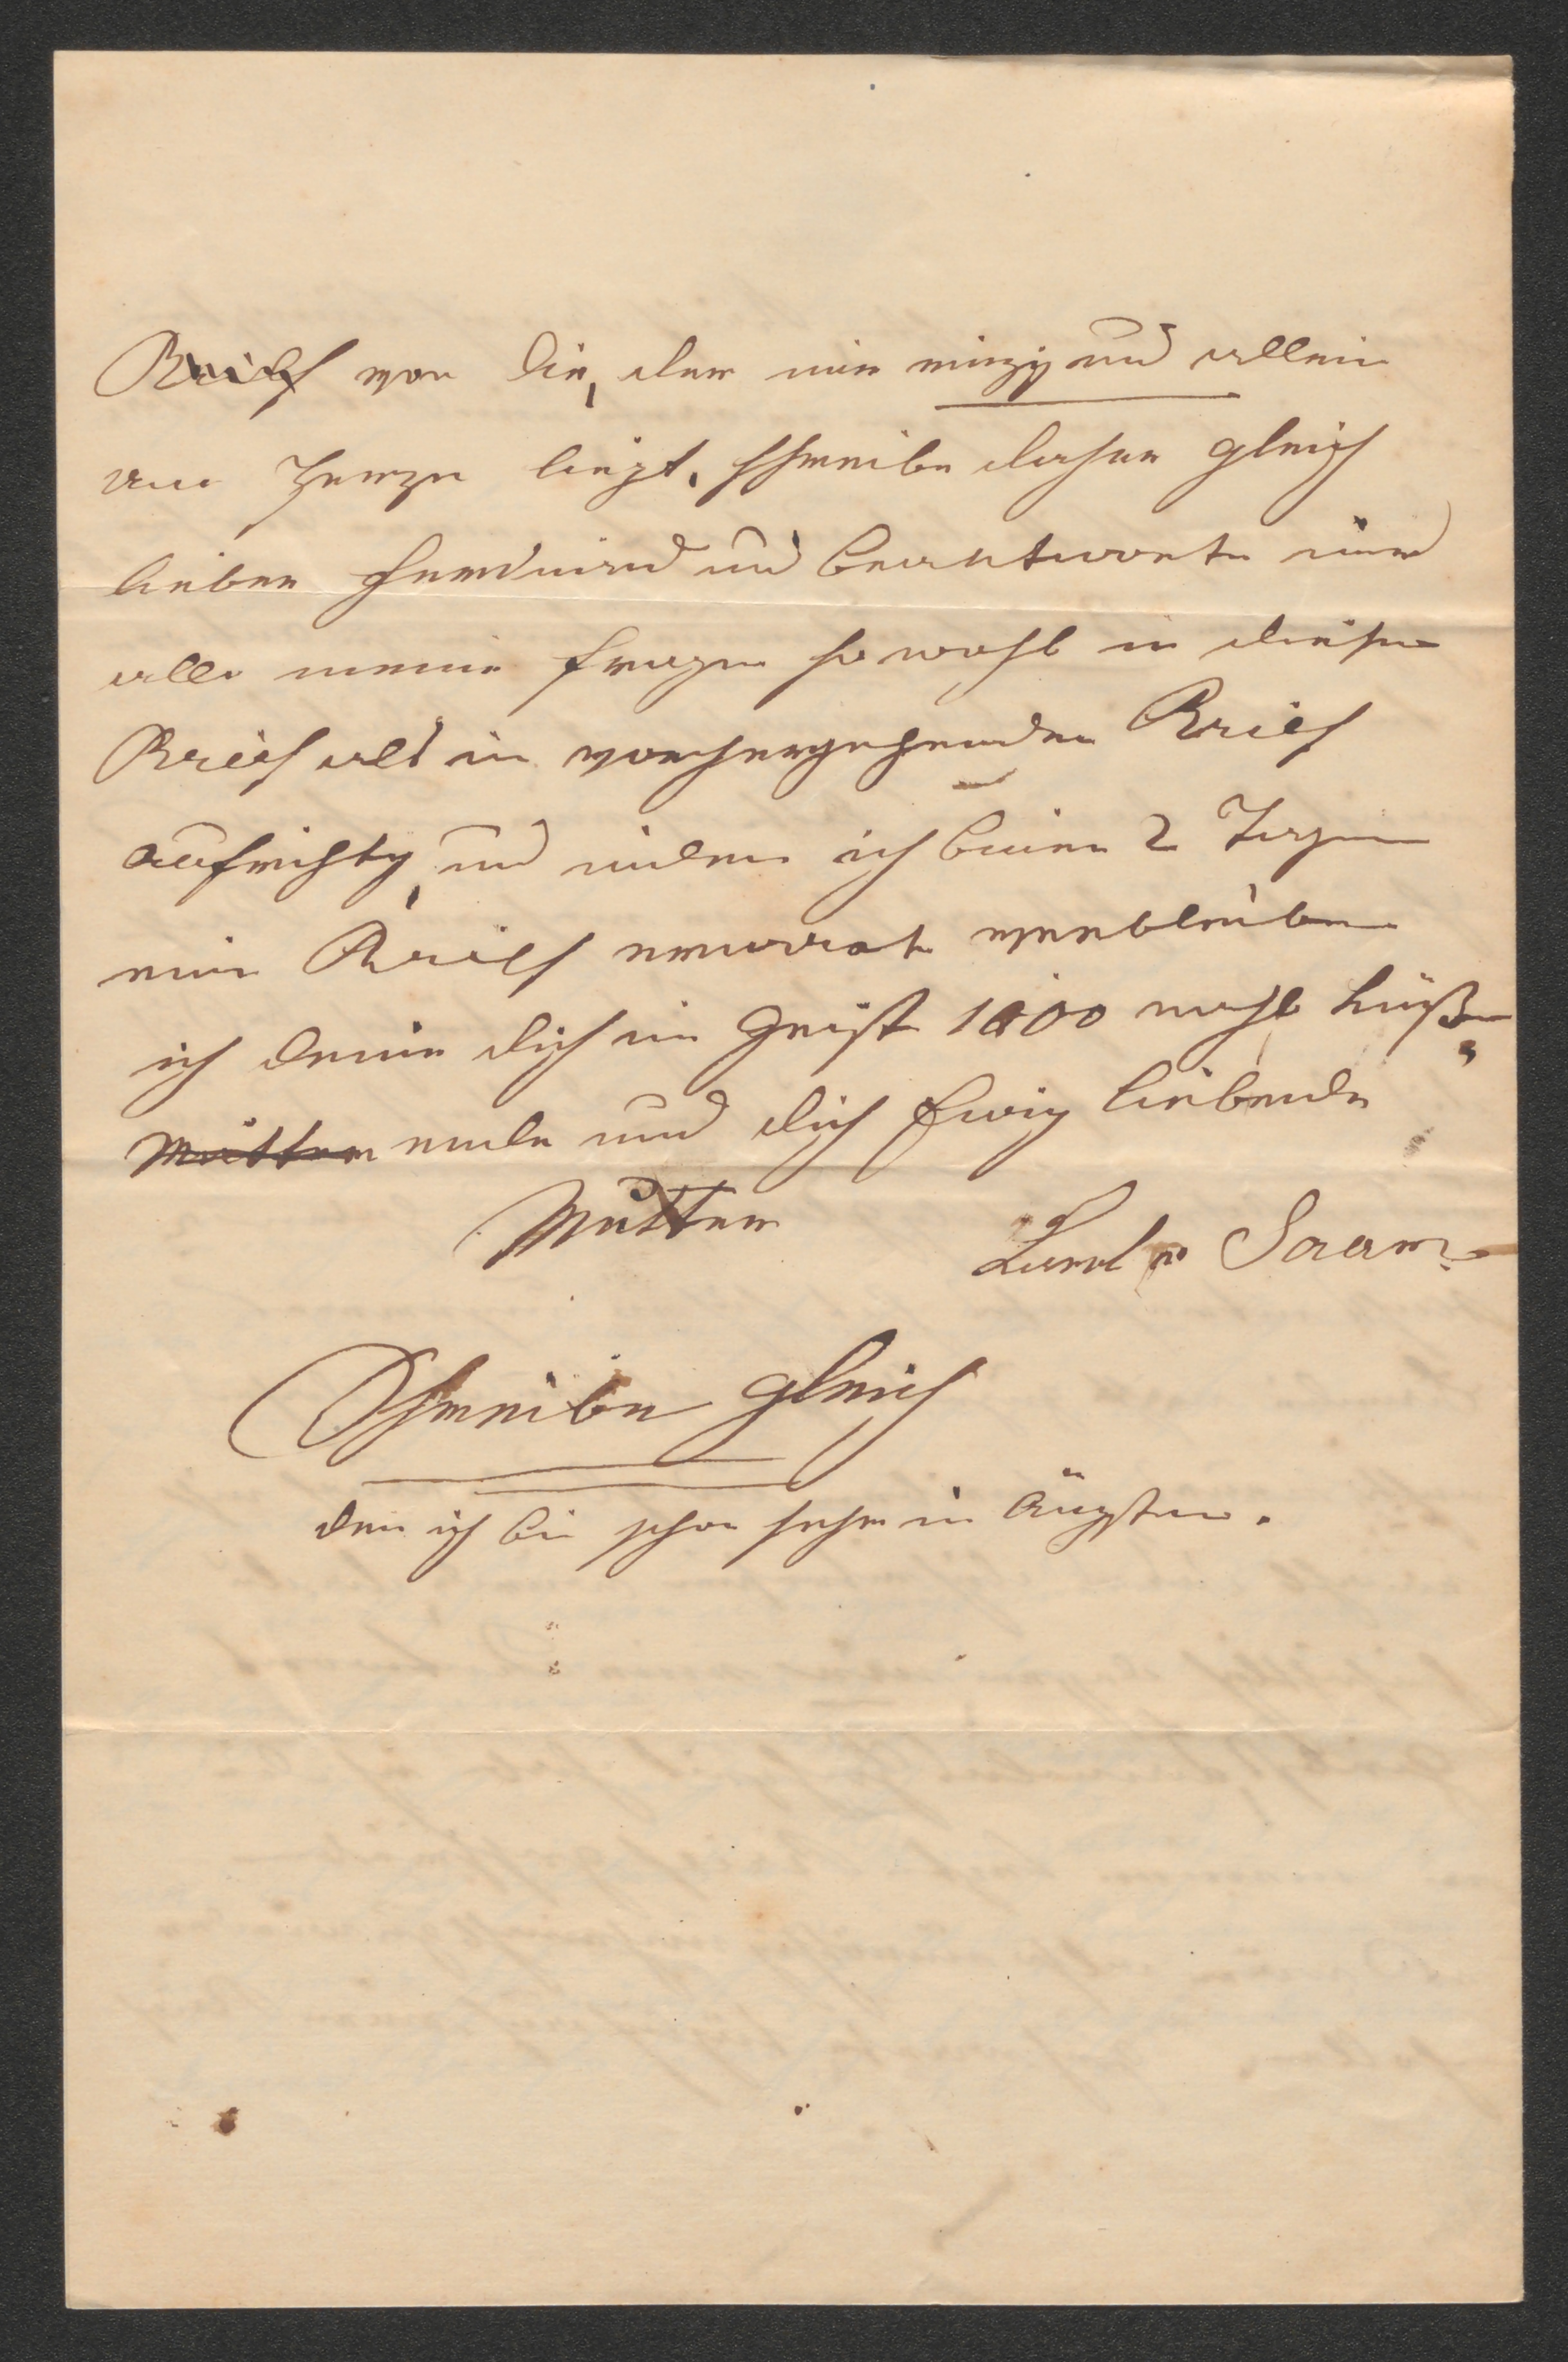 Brief von dir, der mir einzig und allein
am Herzen liegt. schreibe daher gleich
lieber Ferdinand und beantworte mir
alle meine fragen so wohl in diesen
Brief als in vorhergehenden Brief
aufrichtig, und indem ich binen 2 Tagen
ein Brief erwarte verbleibe
ich deine dich im Geiste 1000 mahl küß„
Mutter ende und dich Ewig liebende
Mutter
Saar
Schreibe gleich
den ich bin schon sehr in Ängsten.